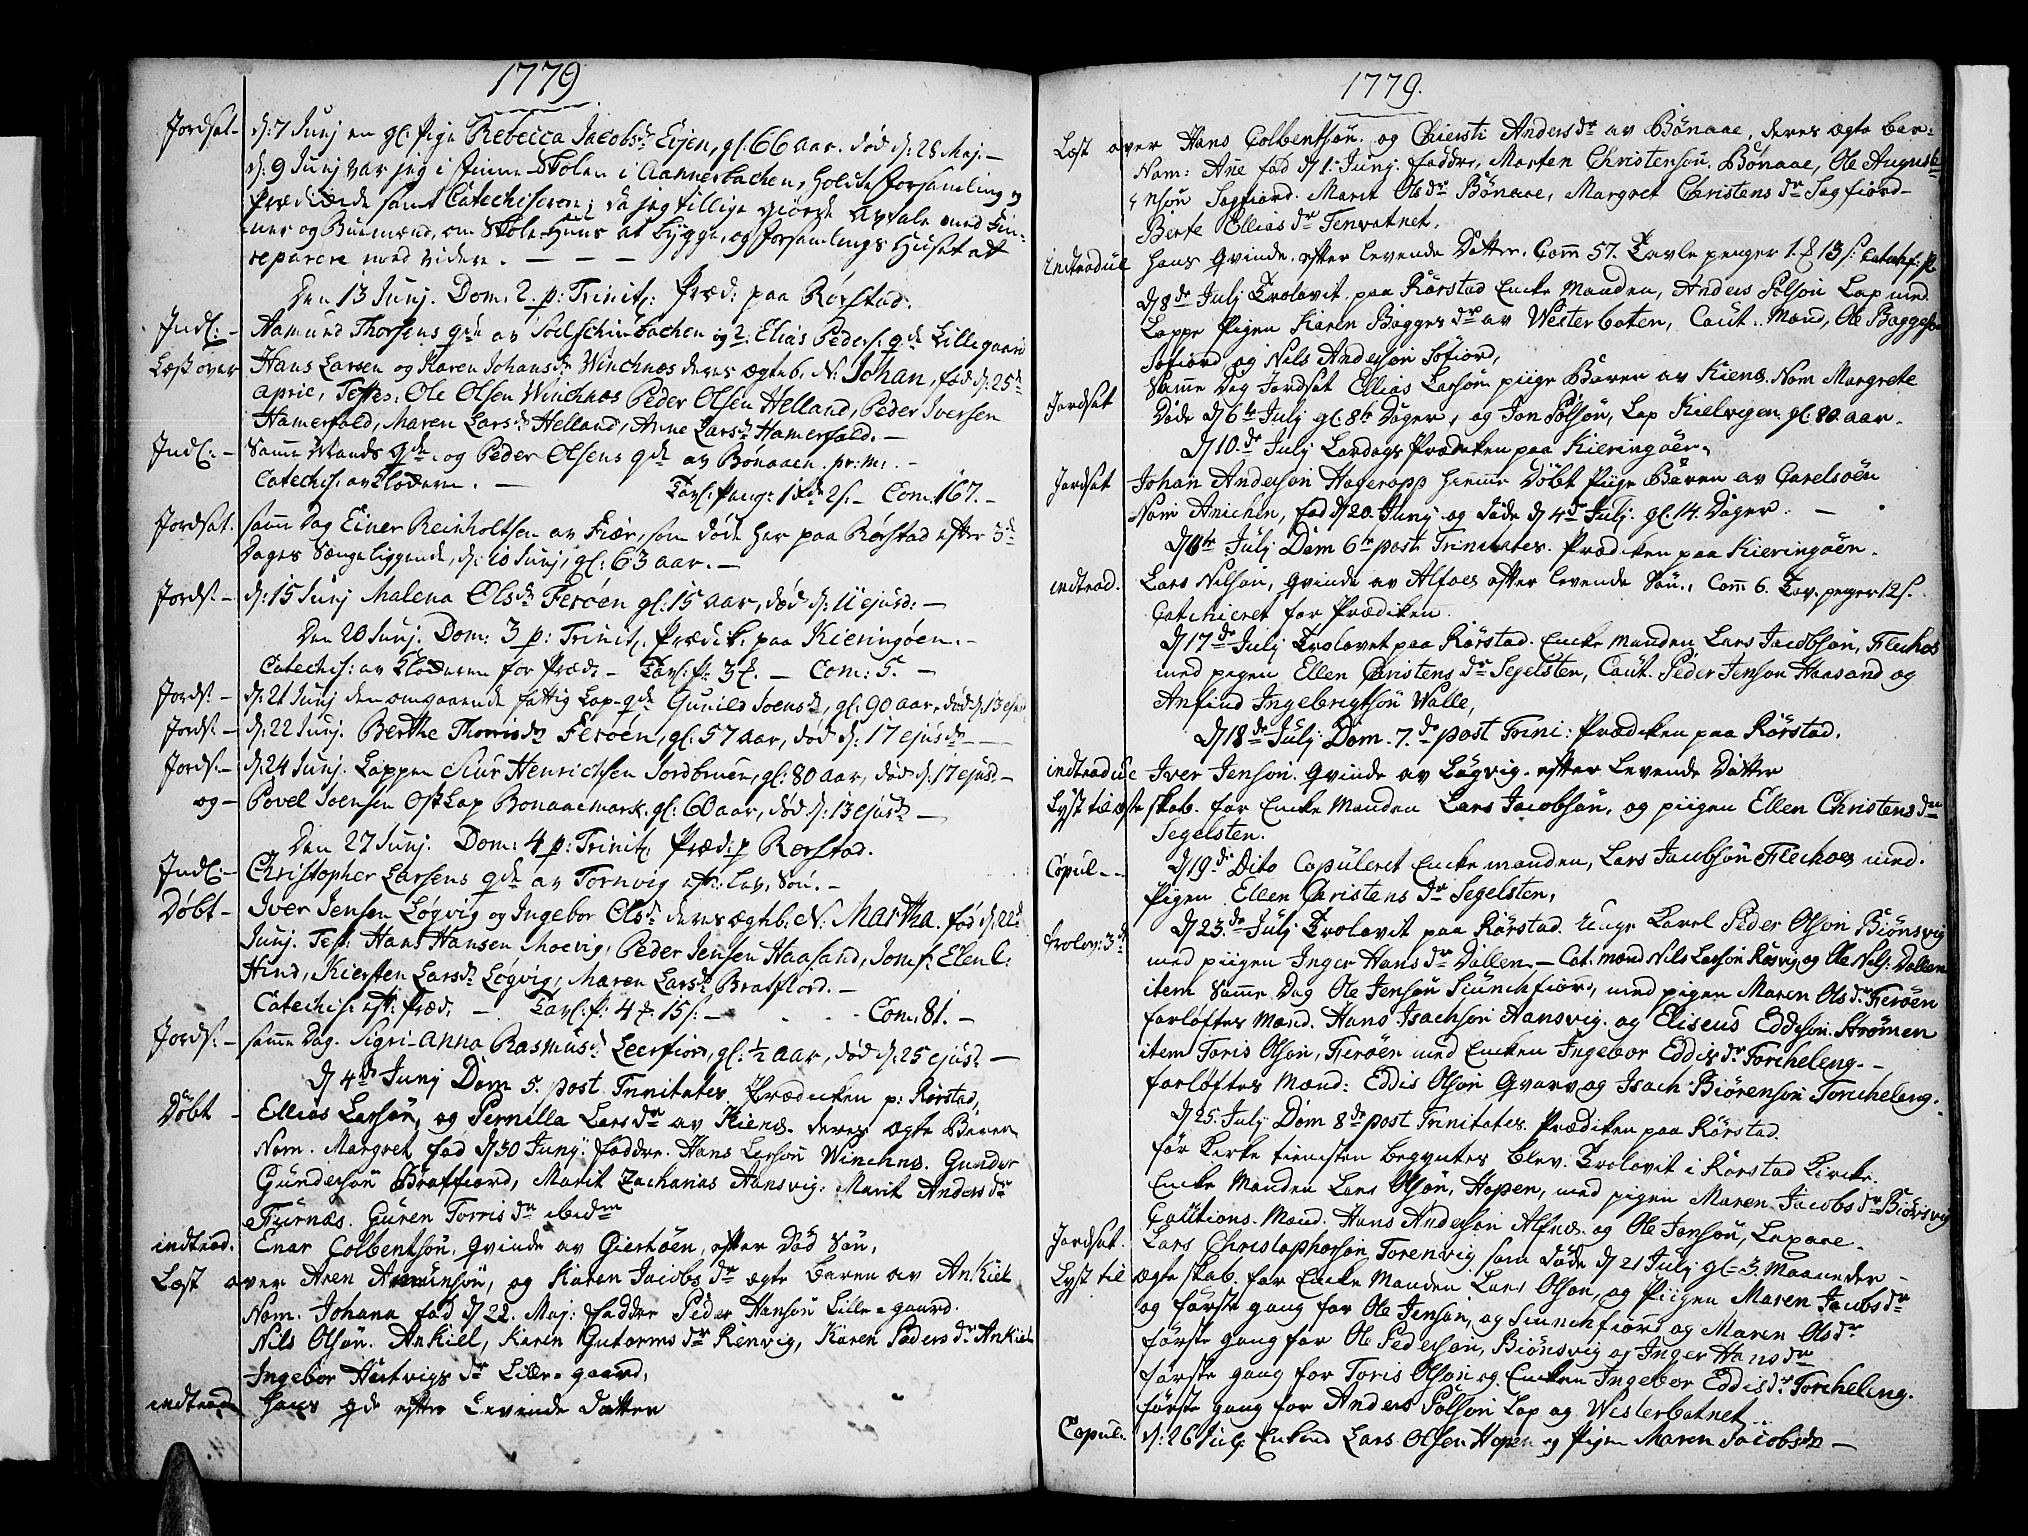 1779
Jordsat- d: 7 Junj en gl: Pige Rebecca Jacobsd: Evjen, gl: 66 aar. død d: 28 Maj.-
d: 9 Junj var jeg i Finne Skolen i Aannesbachen, holdte forsamling og
Prædikede samt Catechiseren; da jeg tillige giorde avtale med Fin-
ner og Buemænd, om Skole-Huus at bygge, og forsamlings Huset att
reparere med videre. - - -
Den 13 Junj. Dom: 2. p: Trinit: Præd: paa Rørstad.
Indl: - Aamund Thorsens qde av Solschinbachen og 2: Elias Peders: qde Lillegaard
Læst over Hans Larsen og Karen Johansd: Winchnæs deres ægteb. N: Johan, fød d: 25de
April, Testes. Ole Olsen Winchnæs Peder Olsen Helland, Peder Iversen
Hamerfald, Maren Larsd: Helland, Anne Larsd: Hamerfald. -
Indl: - Samme Mands qde og Peder Olsens qde av Bonaaen. pr: m: -
Catechis: av Kloderen. - Tavl: Penge 1 2 s. - Com: 167. -
Jordsat. samme Dag Einer Reinholtsen av Fiær, som døde her paa Rørstad efter 3de
Dages Sængeliggende, d: 10 Junj, gl: 63 aar. -
Jords: - d: 15 Junj Malena Olsd: Ferøen gl: 15 aar, død d: 11 ejusd: -
Den 20 Junj. Dom: 3 p: Trinit: Prædik: paa Kieringøen. -
Catechis: av Kloderen for Præd: - Tavl: P: 3 - Com: 5. -
Jords: - d: 21 Junj den omgaaende fattig Lap-qde Gunild Joensd:, gl: 90 aar, død d: 13 ejusd
Jords: - d: 22 Junj. Berthe Thorrisd: Ferøen, gl: 57 aar, død d: 17 ejusd: -
Jords: - d: 24 Junj. Lappen Siur Henrichsen Nordbruen, gl: 80 aar, død d: 17 ejusd -
og - Povel Joensen Ost Lap Bonaaemark, gl: 60 aar, død d: 13 ejusd: -
Den 27 Junj. Dom: 4 p: Trinit: Præd: p Rorstad.
Indl: - Christopher Larsens qde av Tornvig eft: lev. Søn. -
Døbt - Iver Jensen Løgvig og Ingebor Olsd: deres ægteb. N: Martha. fød d: 22de
Junj. Test: Hans Hansen Moevig, Peder Jensen Haasand, Jomf: Elen C:
Hind, Kiersten Larsd: Løgvig, Maren Larsd: Bratflord. -
Catechis: eft: Præd: - Tavl: P: 4 15 s: - Com: 81. -
Jords: - samme Dag. Sigri-Anna Rasmusd: Leerfiord, gl: 1/2 aar, død d: 25 ejusd: -
D 4de Junj Dom 5. post Trinitates Prædicken p: Rørstad,
Døbt - Ellias Larsøn, og Pernilla Larsdr av Kienæ. deres ægte Baren
Nom. Margret fød d 30 Junj: faddre. Hans Larsøn Winchnæs. Gunder
Gundersøn Bratfiord, Marit Zacharias Hansvig: Marit Andersdr
Furnæs. Guren Torrisdr ibidm
indtrod. Enar Colbentsøn, Qvinde av Giertøen, efter Død Søn,
Læst over Aren Amunsøn, og Karen Jacobsdr ægte Baren av Ankiel
Nom. Johana fød d 22. Maj: faddre Peder Hansøn Lille=gaard.
Nils Olsøn. Ankiel, Karen Gutormsdr Renvig, Karen Pedersdr Ankiel
Ingebor Hartvigsdr Lille=gaard,
indtrod hans qde efter Levende Datter
1779.
Læst over Hans Colbentsøn. og Chiersti Andersdr av Bønaae, deres ægte bar=
Nom: Ane fød d 1. Junj. faddre, Morten Christensøn. Bønaae, Ole Augusti
nsøn Sagfiord. Marit Olsdr Bønaae, Margret Christensdr Sagfiord-
Berte Elliasdr Tenvatnet.
indtroduc hans Qvinde. efter levende Datter. Com 57. Tavle penger 1. 13 s: Catechis: pr
d 8de Julj Trolovit paa Rørstad Encke Manden, Anders Polsøn Lap med
Lappe Pigen Karen Baggesdr av Westerbaten, Caut. Mænd, Ole Baggesøn
Sofiord og Nils Andersøn Sofiord,
Jordsat Samme Dag Jordsat Ellias Larsøn piige Baren av Kienæ. Nom Margrete
Døde d 6te Julj gl: 8te Dager, og Jon Polsøn, Lap Kielvigen gl: 80 aar.
d 10de Julj Lørdags Prædicken paa Kieringøen
Jordsat Johan Andersøn Haferapp hiemme Døbt Piige Baren av Garelsøen
Nom Anichen, fød d 20. Junj og døde d 4de Julj. gl: 14. Dager. -
d 11te Julj Dom 6te post Trinitates. Prædiken paa Kieringøen.
indtrod. Lars Nilsøn, Qvinde av Alfnes efter levende Søn., Com 6. Tav. penger 12 s.
Catechieret for Prædiken.
d 17de Julj Trolovet paa Rørstad. Encke manden Lars Jacobsøn, Flechos
med pegen Ellen Christensdr Segelsten, Caut. Peder Jensøn Haasand og
Anfind Ingebrigtsøn Walle,
d 18de Julj Dom. 7de post Trini: Prædicken paa Rørstad,
indtroduc Iver Jensøn. Qvinde av Løgvig. efter Levende Datter
Lyst til ægteskab. for Encke Manden Lars Jacobsøn, og piigen Ellen Christensdr
Segelsten.
Copul-- d 19de Dito Copuleret Encke manden, Lars Jacobsøn Flechoes med.
Pigen Ellen Christensdr Segelsten,
trolov: 3de d 23de Julj Trolovit paa Rørstad. Unge Karel Peder Olsøn Biønsvig
med piigen Inger Hansdr Dallen - Cat: mænd Nils Larsøn Røsvig og Ole Nils: Dallen
item Samme Dag Ole Jensøn Siunchfiord, med pigen Maren Olsdr Ferøen
forløftes Mænd. Hans Isachsøn Hansvig. og Eliseus Eddesøn. Strømen
item Toris Olsøn, Ferøen med Encken Ingebor Eddisdr Torcheleng. -
forløftes Mænd: Eddis Olsøn Qvarv og Isach Biørensøn Torcheleng.
d 25. Julj Dom 8de post Trinitates. Prædicken paa Rørstad.
før Kerke tienesten begyntes blev. Trolovit i Rørstad Kircke.
Encke Manden Lars Olsøn, Hopen, med pigen Maren Jacobsdr Biønsvig
Cautions. Mænd. Hans Andersøn Alfnæ. og Ole Jensøn, Lapaae -
Jordsat. Lars Christophersøn Torenvig. som døde d 21 Julj gl= 3. Maaneder -
Lyst til ægteskab. for Encke Manden Lars Olsøn, og Piigen Maren Jacobsdr
og første gang for Ole Jensøn, og Siunchfiord og Maren Olsdr
første gang for Ole Pedersøn, Biønsvig og Inger Hansdr
første gang for Toris Olsøn og Encken Ingebor Eddisdr Torcheleng.
første gang for Anders Polsøn Lap og Westerbatnet
Copul: d: 26 Julj Enkemd Lars Olsen Hopen og Pigen Maren Jacobsdr -